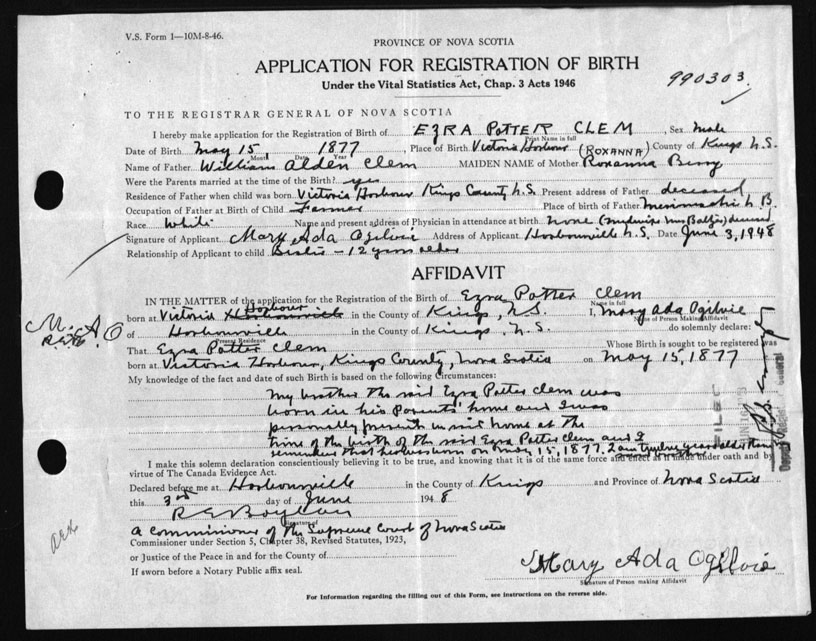 V.S. Form 1—10M-8-46.
PROVINCE OF NOVA SCOTIA
APPLICATION FOR REGISTRATION OF BIRTH
Under the Vital Statistics Act, Chap. 3 Acts 1946
990303.
TO THE REGISTRAR GENERAL OF NOVA SCOTIA
I hereby make application for the Registration of Birth of EZRA POTTER CLEM, Sex Male
Print Name in full
Date of Birth May 15 1877, Place of Birth Victoria Harbour (ROXANNA) County of Kings N.S.
Month Date Year
Name of Father William Alden Clem MAIDEN NAME of Mother Roxanna Berry
Were the Parents married at the time of the Birth? yes
Residence of Father when child was born Victoria Harbour Kings County N.S. Present address of Father deceased
Occupation of Father at Birth of Child Farmer Place of birth of Father N.B.
Race White Name and present address of Physician in attendance at birth none (midwife Mrs
Signature of Applicant Mary Ada Ogilvie Address of Applicant Harbourville N.S. Date June 3, 1948
Relationship of Applicant to child Sister - 12 years older
AFFIDAVIT
IN THE MATTER of the application for the Registration of the Birth of Ezra Potter Clem
Name in full
born at Victoria Harbour Harbourville in the County of Kings, N.S. I, Mary Ada Ogilvie
Name of Person Making Affidavit
M. A. O
of Harbourville in the County of Kings, N.S. do solemnly declare:
Present Residence
That Ezra Potter Clem Whose Birth is sought to be registered was
born at Victoria Harbour, Kings County, Nova Scotia on May 15, 1877
My knowledge of the fact and date of such Birth is based on the following Circumstances:
My brother the said Ezra Potter Clem was
born in his parents' home and I was
personally present in said home at the
time of the birth of the said Ezra Potter Clem and I
remember that he was born on May 15, 1877. I am twelve years older than
I make this solemn declaration conscientiously believing it to be true, and knowing that it is of the same force and effect as if made under oath and by
virtue of The Canada Evidence Act.
Declared before me at Harbourville in the County of Kings and Province of Nova Scotia
this 3rd day of June 1948
Signature of
A Commissioner of the Supreme Court of Nova Scotia
Commissioner under Section 5, Chapter 38, Revised Statutes, 1923,
or Justice of the Peace in and for the County of
If sworn before a Notary Public affix seal.
Mary Ada Ogilvie
Signature of Person making Affidavit
For Information regarding the filling out of this Form, see instructions on the reverse side.